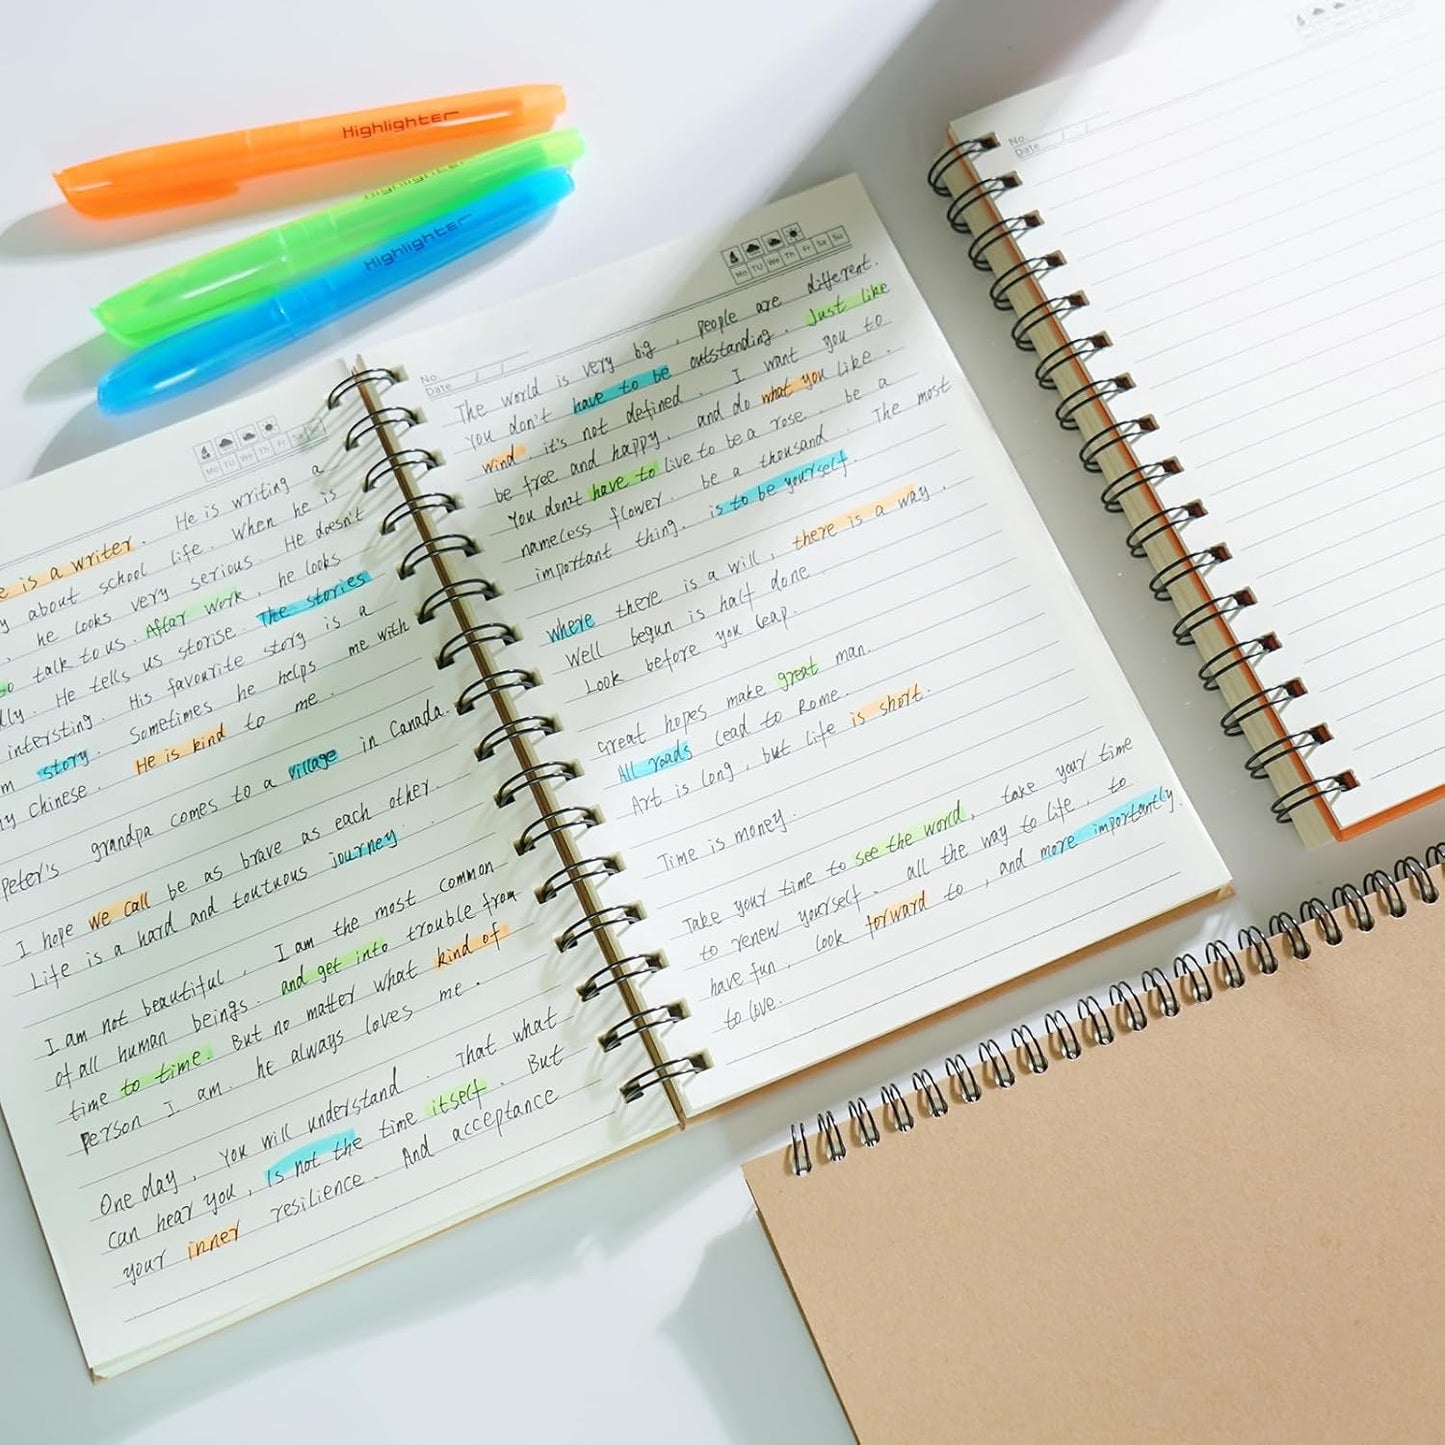 Highlighter
Highlighter
Highlighter
Mo TU We Th Fr Sa Su
He is writing a
e is a writer.
y about school life. When he is
, he looks very serious. He doesn't
so talk to us. After work, he looks
lly. He tells us storise. The stories
intersting. His favourite story is a
m story. Sometimes he helps me with
ny Chinese. He is kind to me.
Peter's grandpa comes to a village in Canada.
I hope we call be as brave as each other.
Life is a hard and toutruous journey.
I am not beautiful. I am the most common
of all human beings. and get into trouble from
time to time. But no matter what kind of
Person I am. he always loves me.
One day, you will understand. That what
can hear you, Is not the time itself. But
your inner resilience. And acceptance
Mo TU We Th Fr Sa Su
No.
Date / /
The world is very big, people are different.
You don't have to be outstanding. Just like
wind. it's not defined. I want you to
be free and happy. and do what you like.
You don't have to live to be a rose. be a
nameless flower. be a thousand. The most
important thing. is to be yourself.
where there is a will, there is a way.
Well begun is half done.
Look before you leap.
Great hopes make great man.
All roads lead to Rome.
Art is long, but life is short.
Time is money.
Take your time to see the world, take your time
to renew yourself. all the way to life. to
have fun. look forward to, and more importantly.
to love.
No.
Date / /